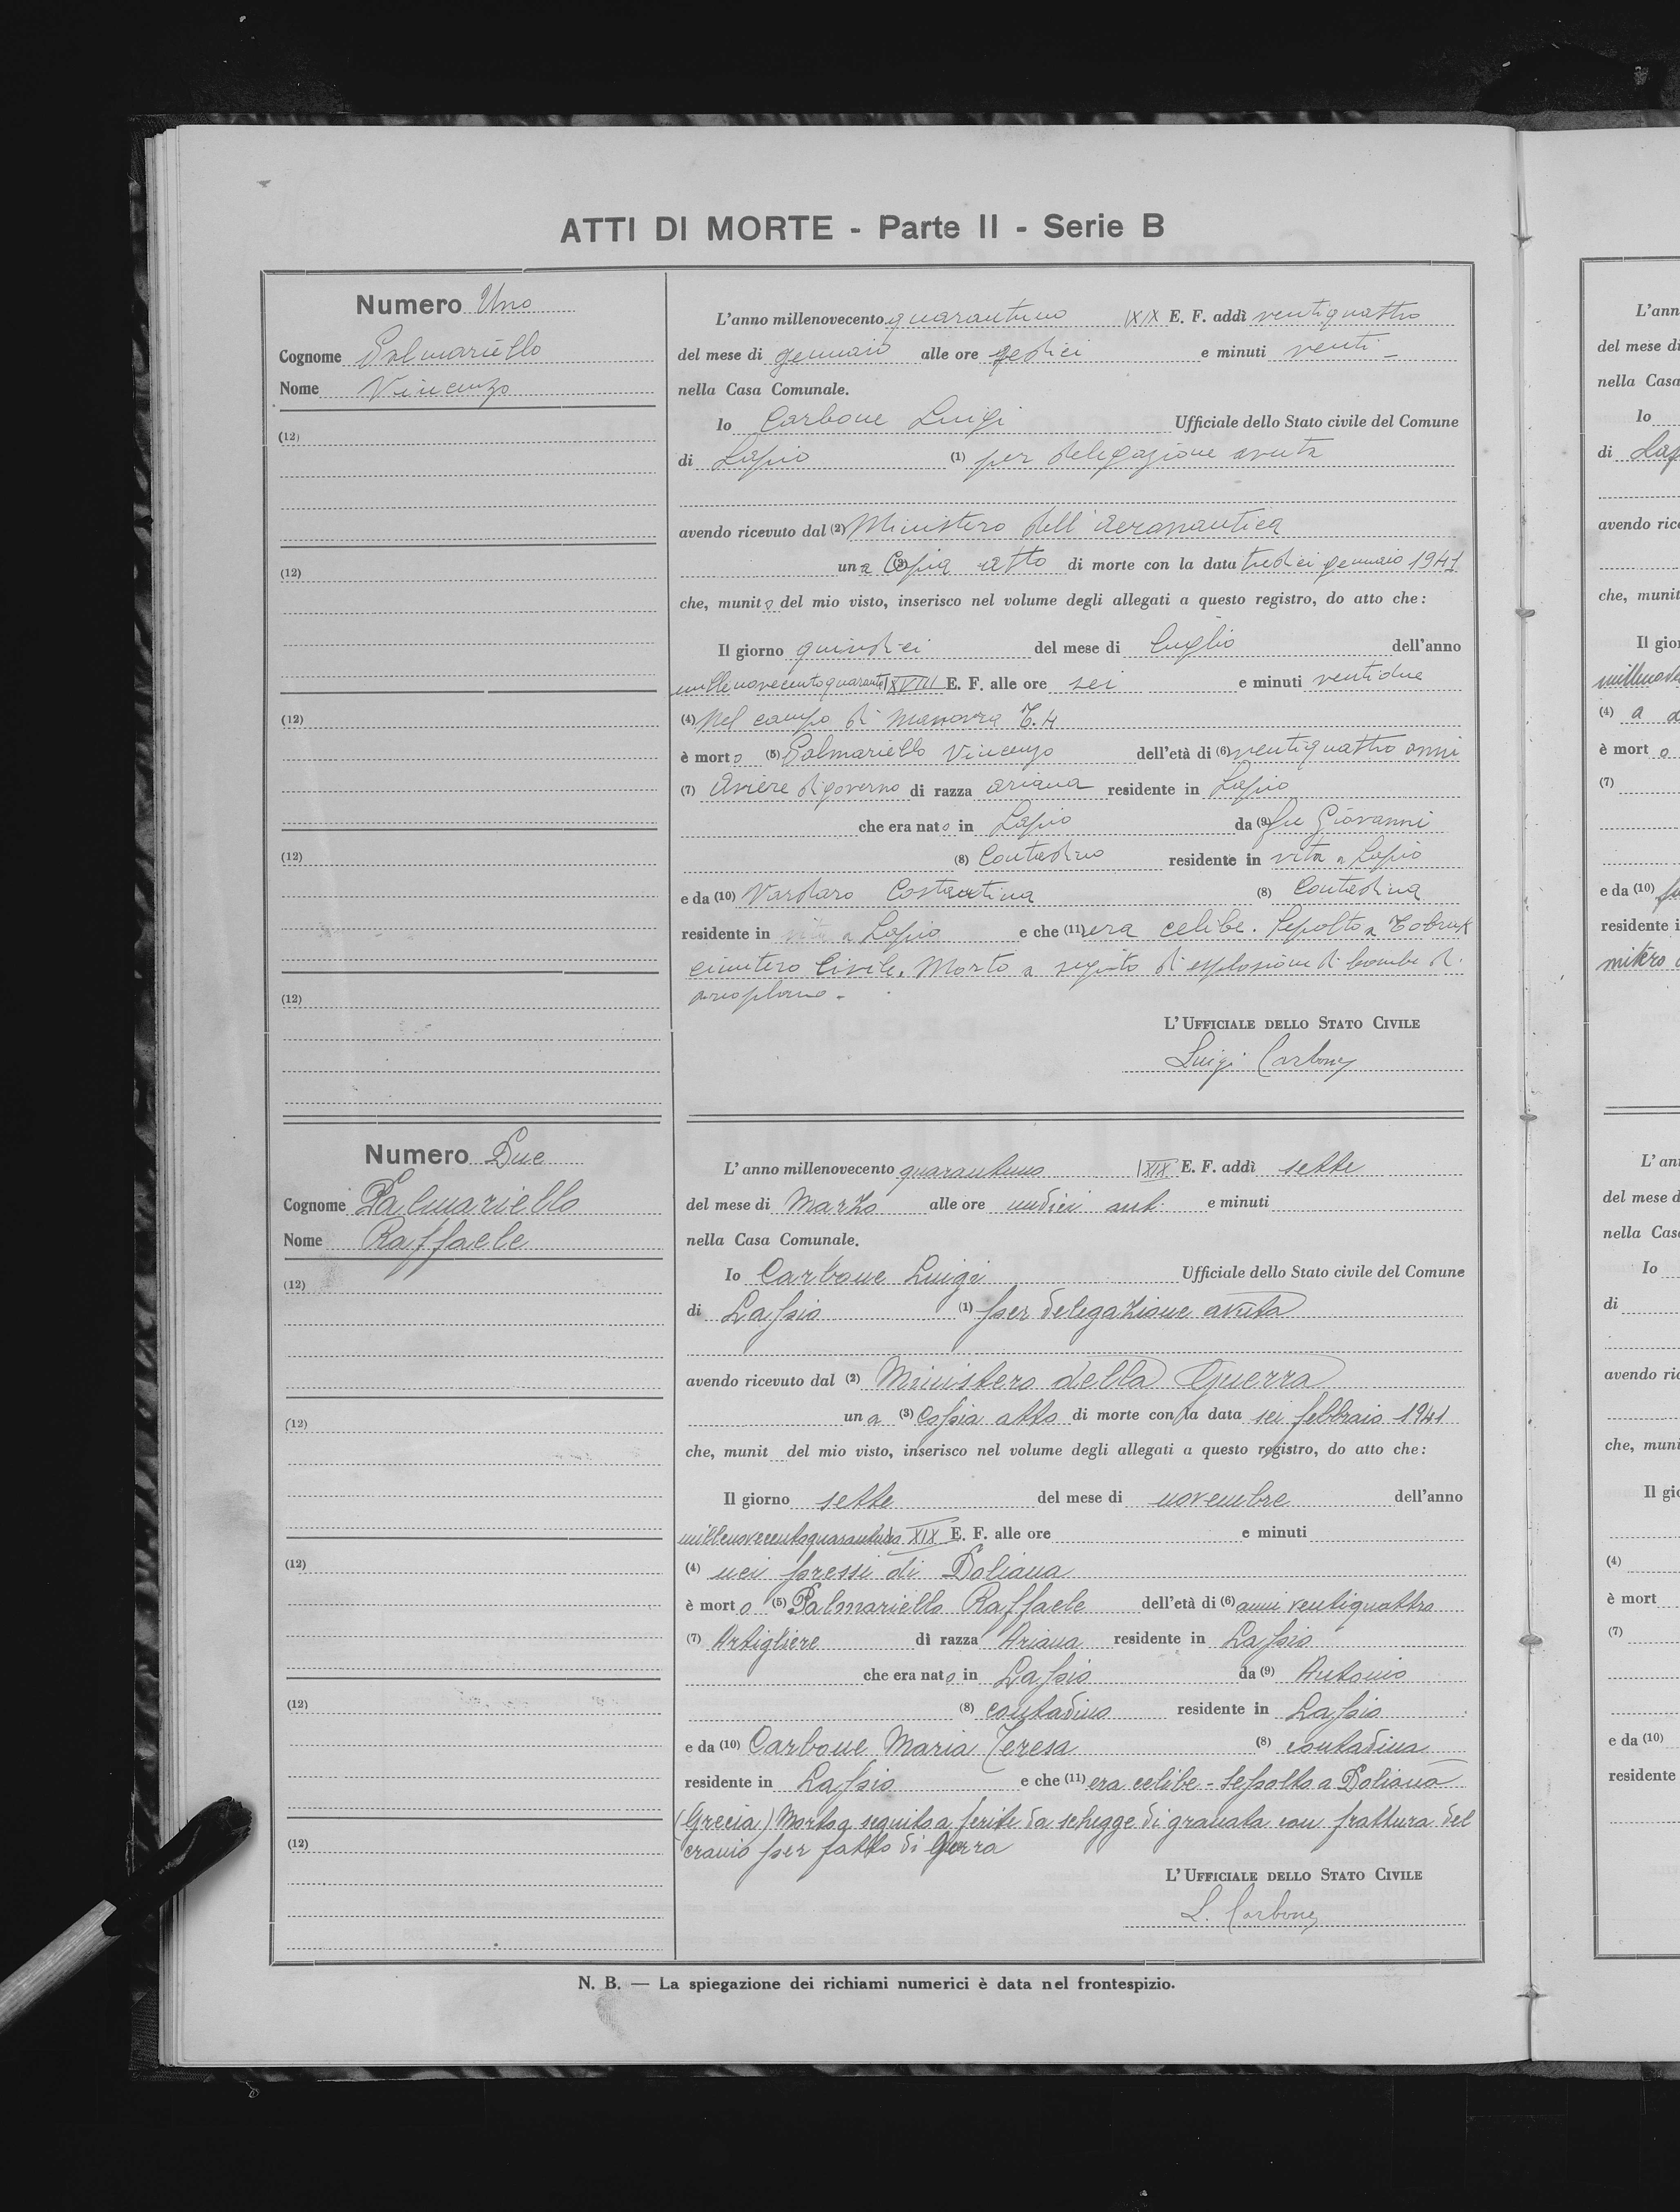 ATTI DI MORTE - Parte II - Serie B
Numero Uno
Cognome Palmariello
Nome Vincenzo
(12)
(12)
(12)
(12)
(12)
L'anno millenovecento quarantuno XIX E. F. addì ventiquattro
del mese di gennaio alle ore sedici e minuti venti -
nella Casa Comunale.
Io Carbone Luigi Ufficiale dello Stato civile del Comune
di Lapio (1) per delegazione avuta
avendo ricevuto dal (2) Ministero dell'Aeronautica
una (3) Copia atto di morte con la data tredici gennaio 1941
che, munito del mio visto, inserisco nel volume degli allegati a questo registro, do atto che:
Il giorno quindici del mese di luglio dell'anno
millenovecentoquaranta XVIII E. F. alle ore sei e minuti ventidue
(4) Nel campo di manovra T. 4
è morto (5) Palmariello Vincenzo dell'età di (6) ventiquattro anni
(7) Aviere di governo di razza ariana residente in Lapio
che era nato in Lapio da (9) fu Giovanni
(8) Contadino residente in vita a Lapio
e da (10) Vardaro Costantina (8) Contadina
residente in vita a Lapio e che (11) era celibe. Sepolto a Tobruk
cimitero Civile. Morto a seguito di esplosione di bombe di
areoplano -
L'UFFICIALE DELLO STATO CIVILE
Luigi Carbone
Numero Due
Cognome Palmariello
Nome Raffaele
(12)
(12)
(12)
(12)
(12)
L'anno millenovecento quarantuno XIX E. F. addì sette
del mese di Marzo alle ore undici ant. e minuti
nella Casa Comunale.
Io Carbone Luigi Ufficiale dello Stato civile del Comune
di Lapio (1) per delegazione avuta
avendo ricevuto dal (2) Ministero della Guerra
una (3) Copia atto di morte con la data sei febbraio 1941
che, munit del mio visto, inserisco nel volume degli allegati a questo registro, do atto che:
Il giorno sette del mese di novembre dell'anno
XIX E. F. alle ore e minuti
(4) nei pressi di Doliana
è morto (5) Palmariello Raffaele dell'età di (6) anni ventiquattro
(7) Artigliere di razza Ariana residente in Lapio
che era nato in Lapio da (9) Antonio
(8) contadino residente in Lapio
e da (10) Carbone Maria Teresa (8) contadina
residente in Lapio e che (11) era celibe - Sepolto a Doliana
(Grecia) Morto a seguito a ferite da schegge di granata con frattura del
cranio per fatto di Guerra
L'UFFICIALE DELLO STATO CIVILE
L. Carbone
N. B. — La spiegazione dei richiami numerici è data nel frontespizio.
L'ann
del mese di
nella Casa
Io
di Lap
avendo rice
che, munit
Il gior
(4) a
è mort o
(7)
e da (10)
residente i
L'an
del mese d
nella Cas
Io
di
avendo ric
che, muni
Il gio
(4)
è mort
(7)
e da (10)
residente